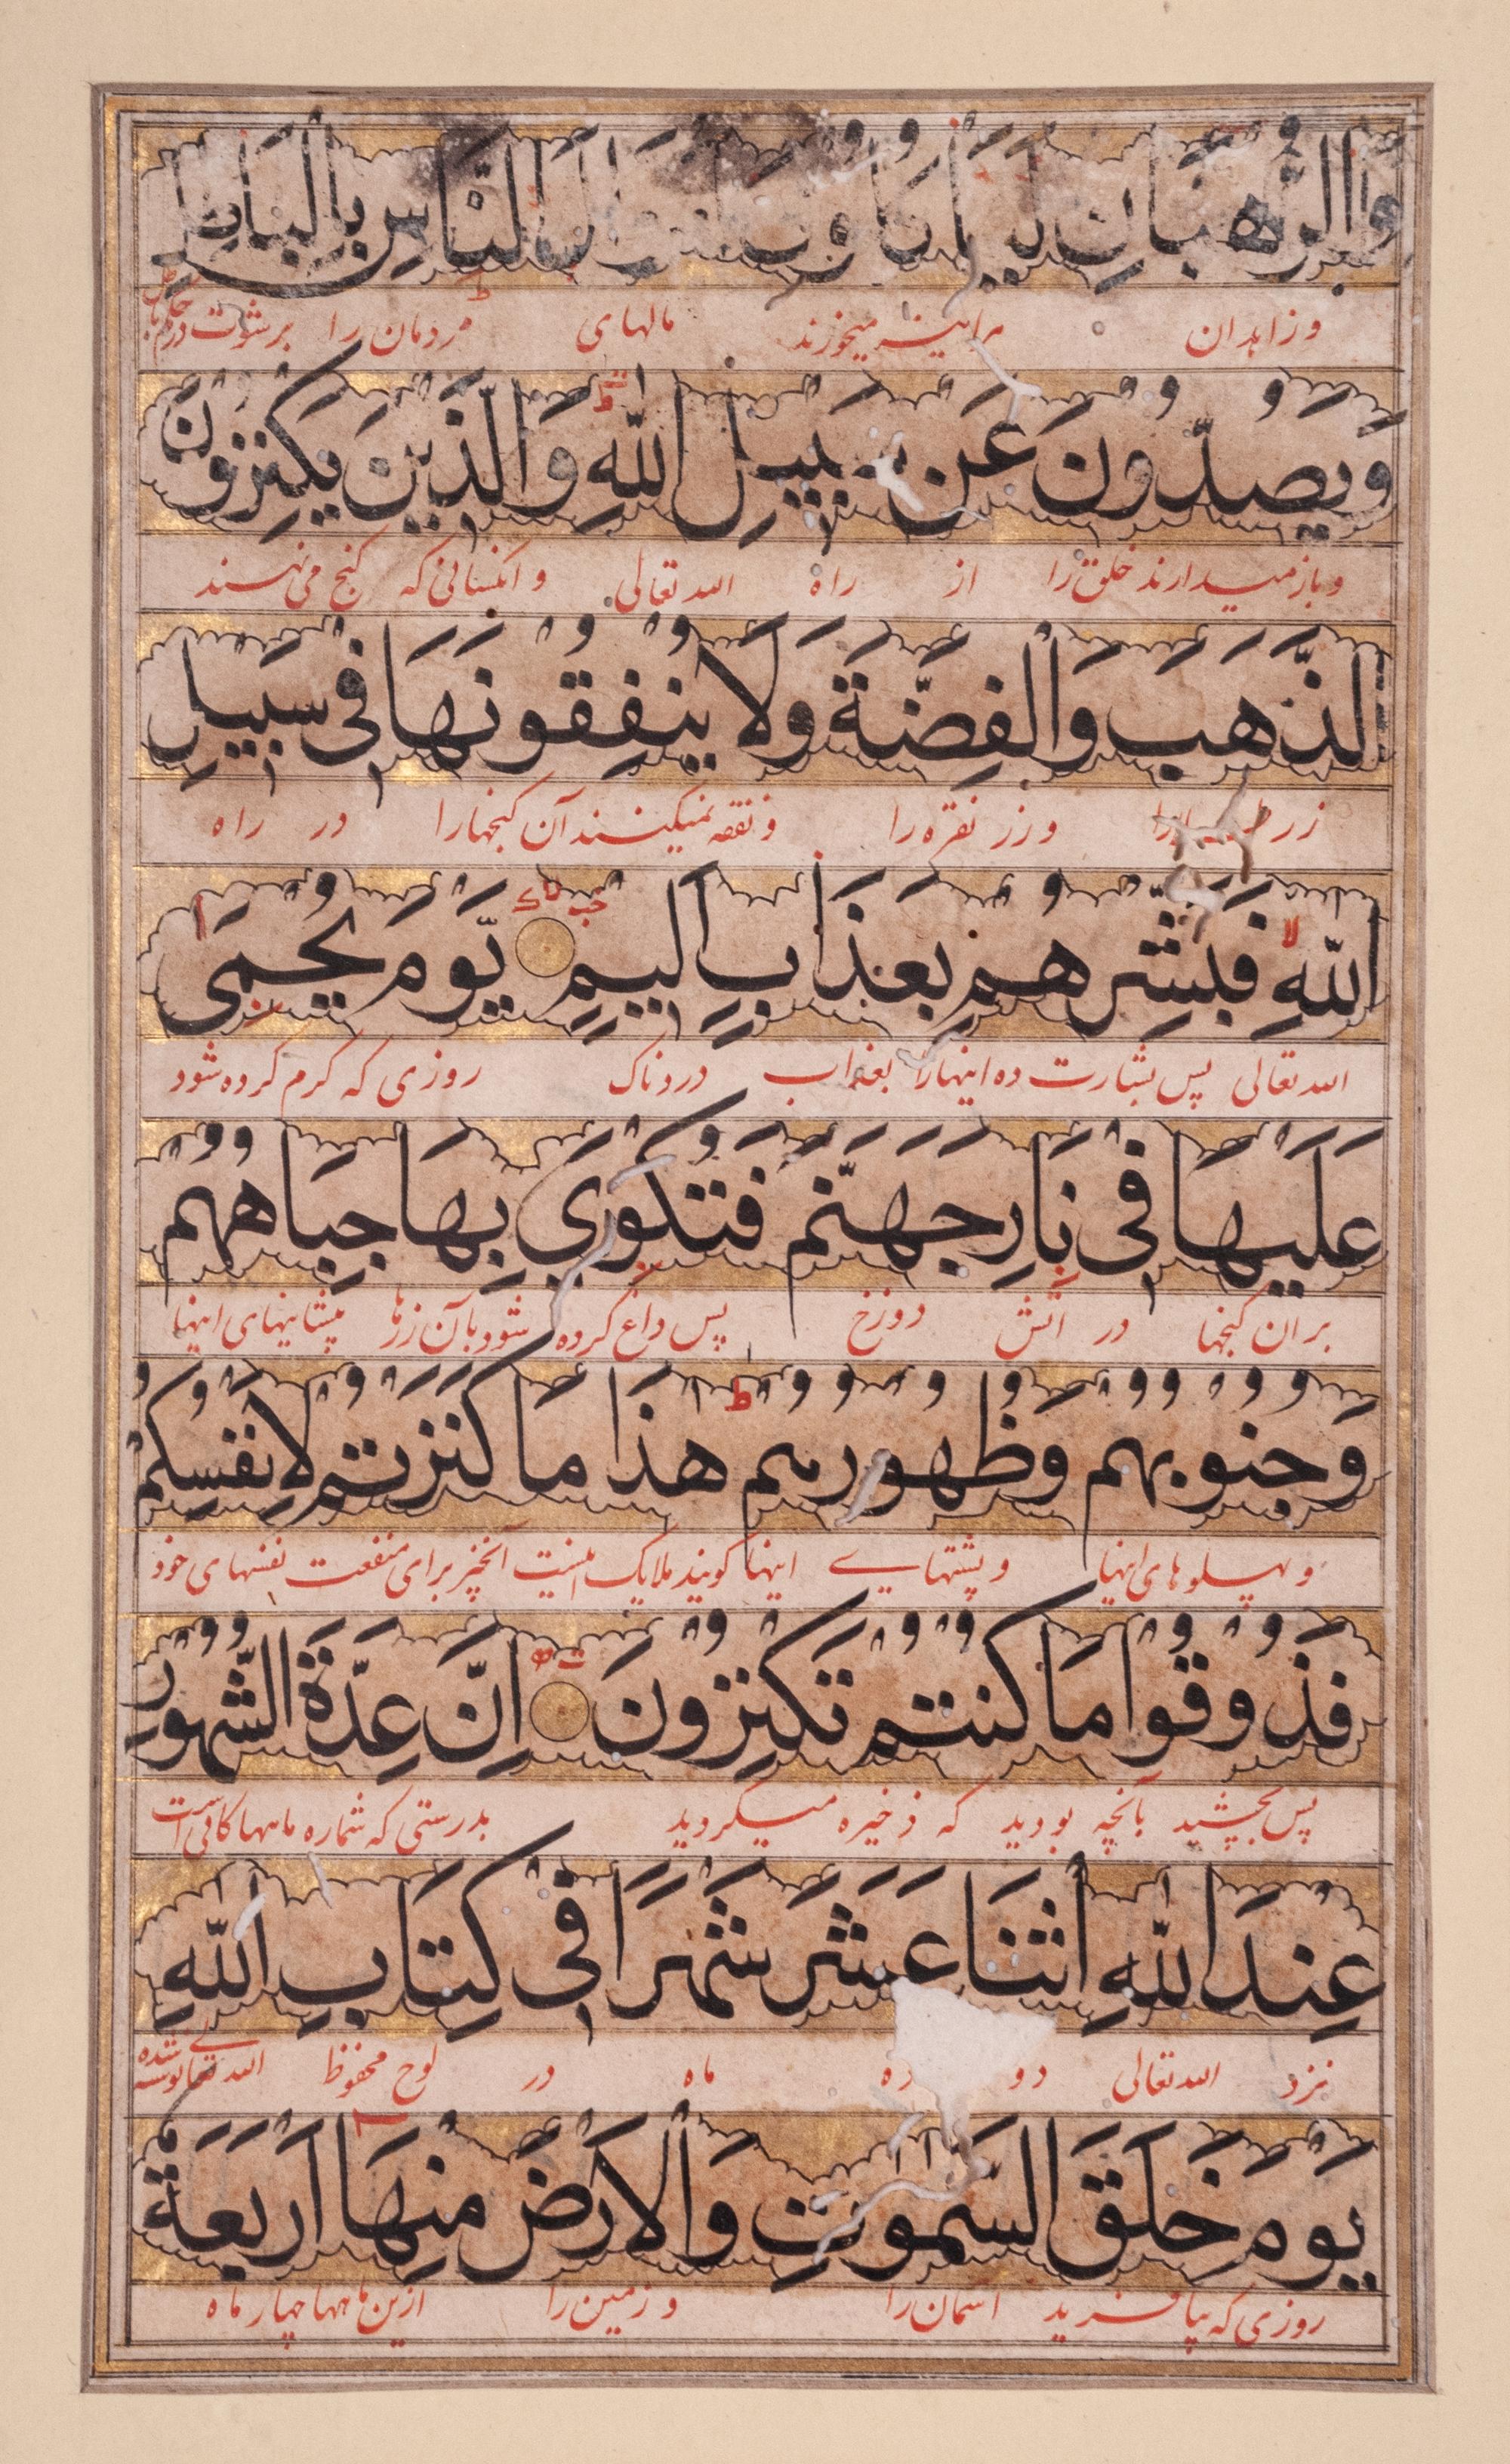 وَالرُّهْبَانِ لَيَأْكُلُونَ أَمْوَالَ النَّاسِ بِالْبَاطِلِ
و زاهدان هراینه میخورند مالهای مردمان را برشوت در حکم
وَيَصُدُّونَ عَنْ سَبِيلِ اللّٰهِ وَالَّذِينَ يَكْنِزُونَ
و باز میدارند خلق را از راه الله تعالی و آنکسانی که کنج می نهند
الذَّهَبَ وَالْفِضَّةَ وَلَا يُنْفِقُونَهَا فِي سَبِيلِ
زر را و زر نقره را و نفقه نمیکنند آن کنجها را در راه
اللّٰهِ فَبَشِّرْهُمْ بِعَذَابٍ اَلِيمٍ يَّوْمَ يُحْمَى
الله تعالی پس بشارت ده اینها را بعذاب دردناک روزی که کرم کرده شود
عَلَيْهَا فِي نَارِ جَهَنَّمَ فَتُكْوَى بِهَا جِبَاهُهُمْ
بر ان کنجها در آتش دوزخ پس داغ کرده شود بآن زرها پیشانیهای اینها
وَجُنُوبُهُمْ وَظُهُورُهُمْ هٰذَا مَا كَنَزْتُمْ لِاَنْفُسِكُمْ
و پهلوهای اینها و پشتهایے اینها کویند ملایک اینست آنچیز برای منفعت نفسهای خود
فَذُوقُوا مَا كُنْتُمْ تَكْنِزُونَ اِنَّ عِدَّةَ الشُّهُورِ
پس بچشید بآنچه بودید که ذخیره میکردید بدرستی که شماره ماهها کافی است
عِنْدَ اللّٰهِ اثْنَا عَشَرَ شَهْرًا فِي كِتَابِ اللّٰهِ
نزد الله تعالی دو ده ماه در لوح محفوظ الله تعالی نوشته شده
يَوْمَ خَلَقَ السَّمٰوٰتِ وَالْاَرْضَ مِنْهَا اَرْبَعَةٌ
روزی که بیافرید اسمان را و زمین را ازین ماهها چهار ماه